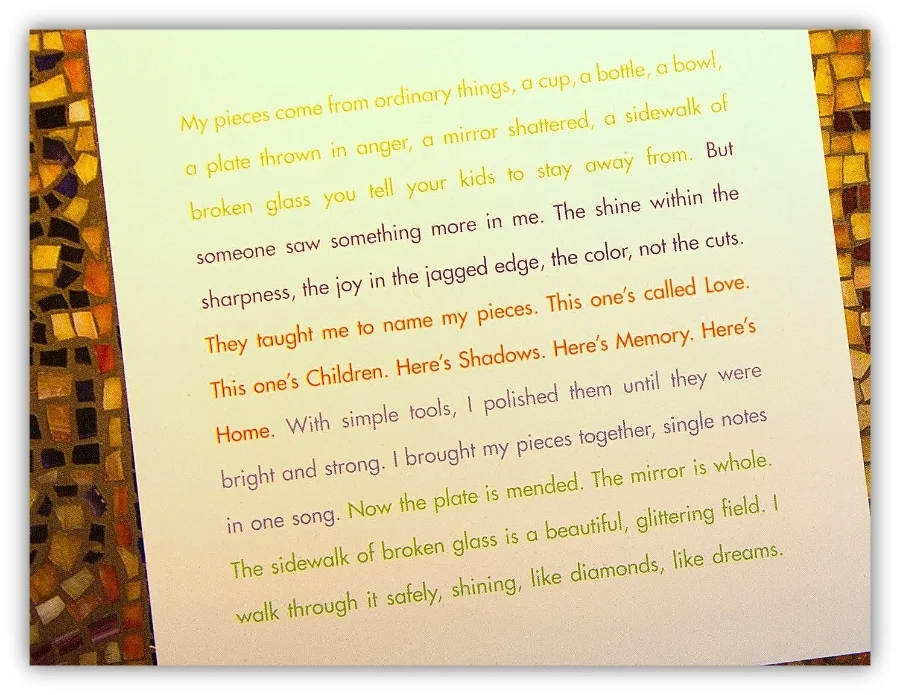 My pieces come from ordinary things, a cup, a bottle, a bowl,
a plate thrown in anger, a mirror shattered, a sidewalk of
broken glass you tell your kids to stay away from. But
someone saw something more in me. The shine within the
sharpness, the joy in the jagged edge, the color, not the cuts.
They taught me to name my pieces. This one's called Love.
This one's Children. Here's Shadows. Here's Memory. Here's
Home. With simple tools, I polished them until they were
bright and strong. I brought my pieces together, single notes
in one song. Now the plate is mended. The mirror is whole.
The sidewalk of broken glass is a beautiful, glittering field. I
walk through it safely, shining, like diamonds, like dreams.